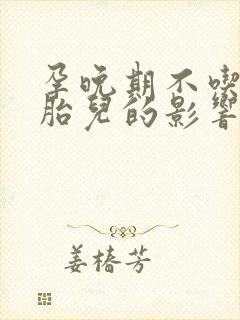 孕晚期不喫
胎兒的影響
姜椿芳